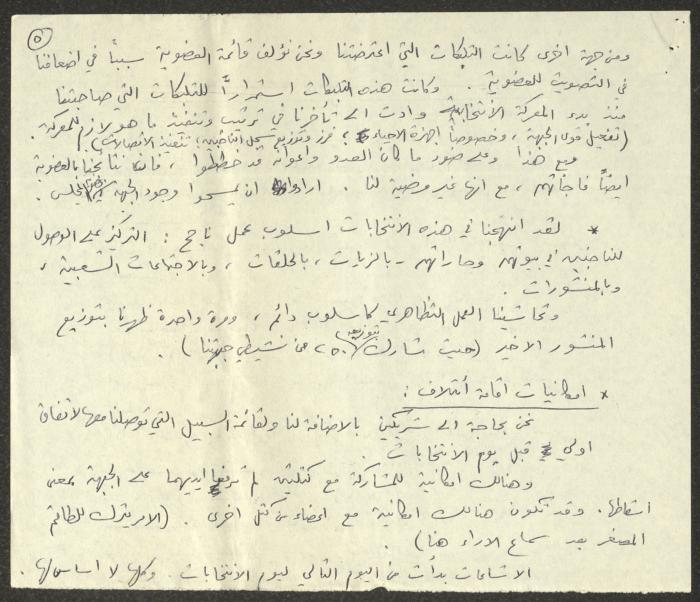 ٥
ومن جهة اخرى كانت التلكات التي اعترضتنا ونحن نؤلف قائمة العضوية سبباً في اضعافنا
في التصويت للعضوية . وكانت هذه التلكات استمراراً للتلكات التي صاحبتنا
منذ بدء المعركة الانتخابية وادت الى تأخرنا في ترتيب وتنفيذ ما هو لازم للمعركة .
(تفعيل قوى الجبهة ، وخصوصاً اجهزة الاحياء ؛ فرز وتوزيع سجل الناخبين ؛ تنفيذ الاتصالات)
ومع هذا وعلى صور ما كان العدو واعوانه قد خططوا ، فان نتائجنا بالعضوية
ايضاً فاجأتهم ، مع انها غير مرضية لنا . ارادوا ان يمسحوا وجود الجبهة المجلس .
* لقد انتهجنا في هذه الانتخابات اسلوب عمل ناجح : التركيز على الوصول
للناخبين في بيوتهم وحاراتهم - بالزيارات ، بالحلقات ، وبالاجتماعات الشعبية ،
وبالمنشورات .
وتحاشينا العمل التظاهري كاسلوب دائم ، ومرة واحدة ظهرنا بتوزيع
المنشور الاخير (حيث شارك بتوزيعه ٢٥٠ من نشيطي جبهتنا ) .
* امكانيات اقامة ائتلاف :
نحن بحاجة الى شريكين بالاضافة لنا ولقائمة السبيل التي توصلنا معها لاتفاق
اولي قبل يوم الانتخابات .
وهنالك امكانية للمشاركة مع كتلتين لم ترفعا ايديهما على الجبهة بمعنى
اسقاطها . وقد تكون هنالك امكانية مع اعضاء من كتل اخرى . (الامر يترك للطاقم
المصغر بعد سماع الاراء هنا) .
الاشاعات بدأت من اليوم التالي ليوم الانتخابات . وكلها لا اساس لها .